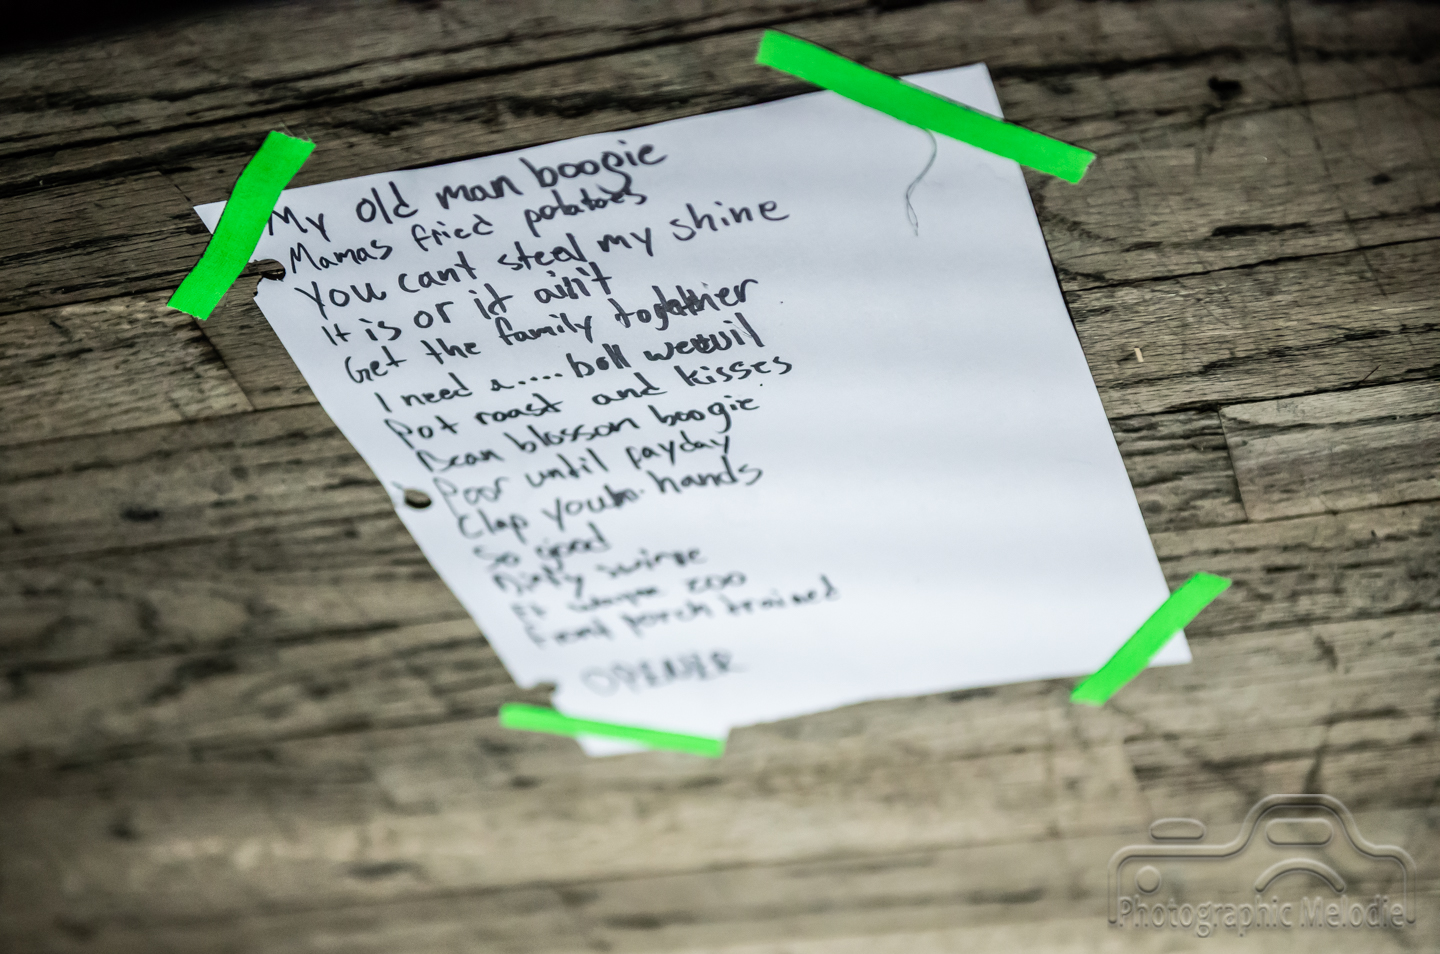 My old man boogie
Mamas fried potatoes
You cant steal my shine
It is or it ain't
Get the family together
I need a.... boll weevil
Pot roast and kisses
Bean blossom boogie
Poor until payday
Clap your hands
So good
Dirty swerve
Ft wayne zoo
Front porch trained
OPENER
Photographic Melodie